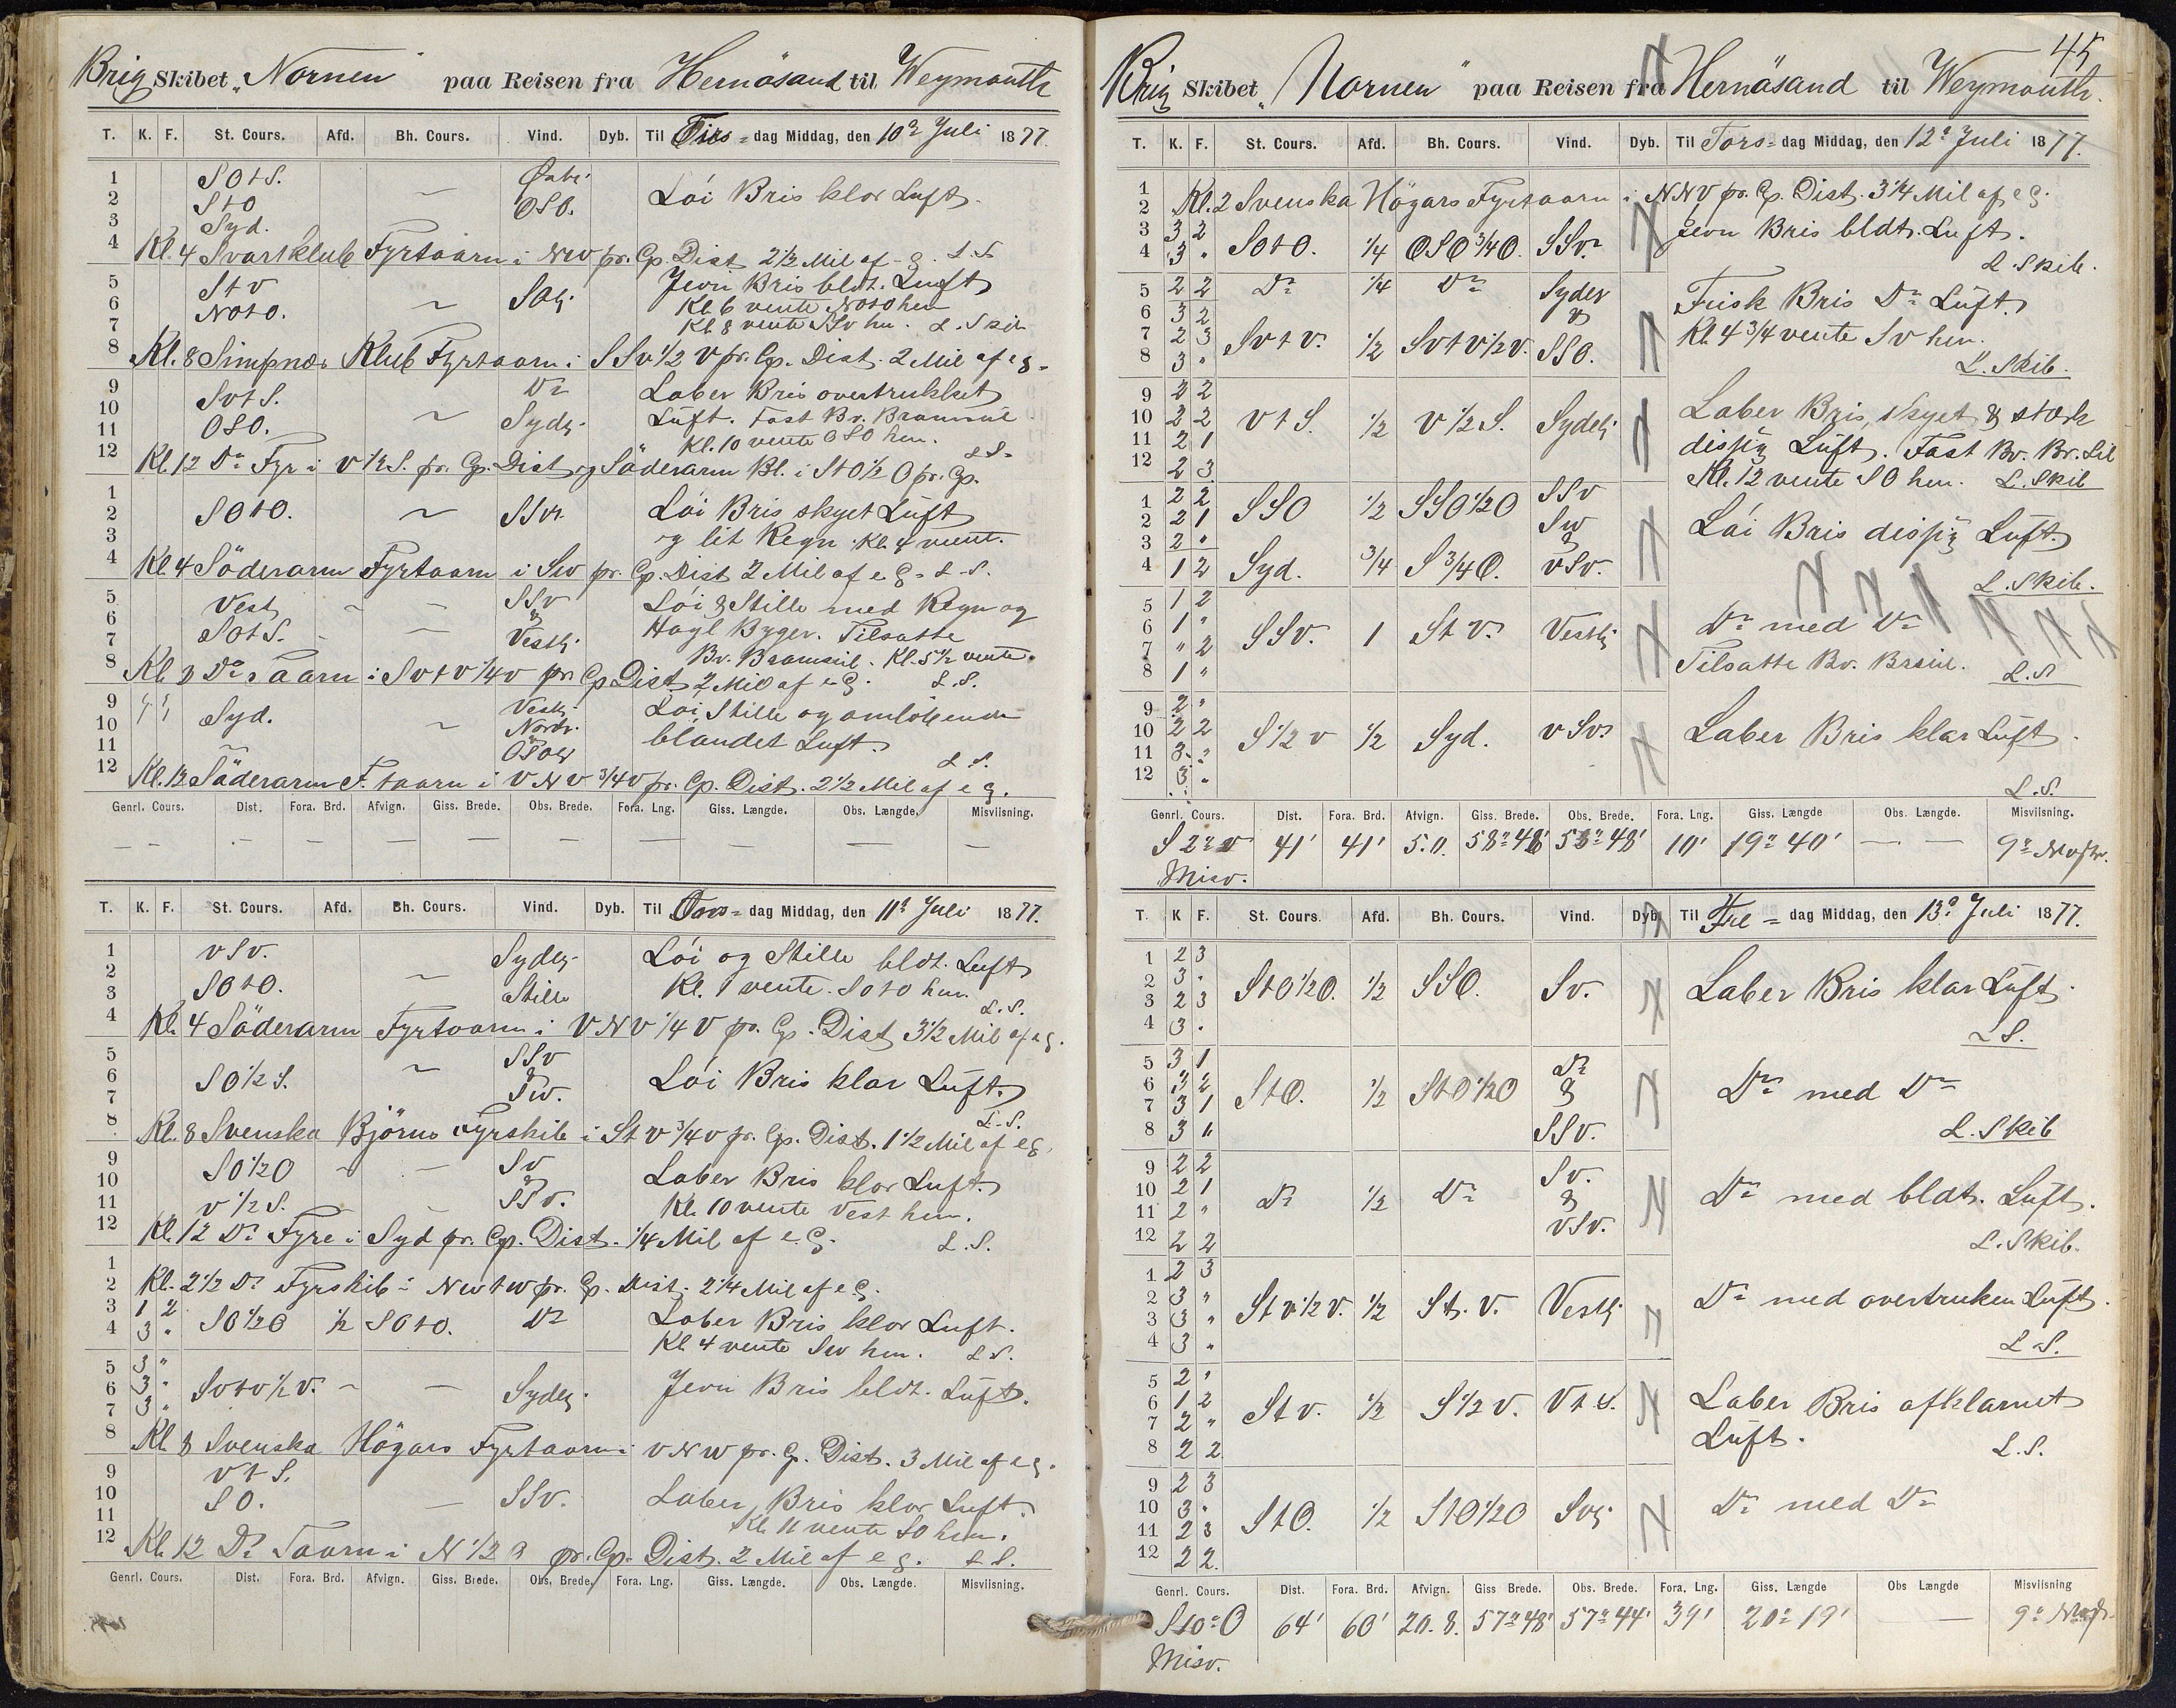 Brig Skibet „Nornen" paa Reisen fra Hernösand til Weymouth
T. K. F. St. Cours. Afd. Bh. Cours. Vind. Dyb. Til Tirs- dag Middag, den 10de Juli 1877.
1 SOtS. Löi Bris klar Luft.
2 StO OSO.
3 Syd.
4 Kl. 4 Svartklub Fyrtaarn i NW pr. Cp. Dist 2 1/2 Mil af L.S.
5 StV SOlig. Jevn Bris bldt. Luft
6 NOtO. Kl. 6 vente NOtO hen
7 Kl. 8 vente SSv hen. L. Skib
8 Kl. 8 Simpnæs Klub Fyrtaarn i SSv 1/2 V pr. Cp. Dist. 2 Mil af eg.
9 SvtS. Do Laber Bris overtrukket
10 OSO. Sydlig. Luft. Fast Bv. Bramseil
11 Kl. 10 vente OSO hen. L.S.
12 Kl. 12 Do Fyr i V 1/2 S. pr. Cp. Dist og Söderarm Bl. i StO 1/2 O pr. Cp.
1
2 SOtO. ~ SSv. Löi Bris skyet Luft
3 og lit Regn. Kl. 4 vent.
4 Kl. 4 Söderarm Fyrtaarn i Sw pr. Cp. Dist 2 Mil af eg. L.S.
5 Vest SSv Löi & Stille med Regn og
6 SOtS. & Hagl Byger. Tilsatte
7 Vestlig. Bv. Bramseil. Kl. 5 1/2 vente.
8 Kl. 8 Do Taarn i SvtV 1/4 v pr. Cp Dist 2 Mil af eg. L.S.
9 Syd. Vestlig Löi, Stille og omlöbende
10 Nordv. blandet Luft.
11 L.S.
12 Kl. 12 Söderarm F. taarn i VNV 3/4 V pr. Cp. Dist. 2 1/2 Mil af eg.
Genrl. Cours. Dist. Fora. Brd. Afvign. Giss. Brede. Obs. Brede. Fora. Lng. Giss. Længde. Obs. Længde. Misviisning.
— — — — — — — — — — —
T. K. F. St. Cours. Afd. Bh. Cours. Vind. Dyb. Til Ons- dag Middag, den 11de Juli 1877.
1 VSv. Sydlig Löi og Stille bldt. Luft
2 SOtO. ~ Stille Kl. 1 vente SOtO hen
3 L.S.
4 Kl. 4 Söderarm Fyrtaarn i VNV 1/4 V pr. Cp. Dist 3 1/2 Mil af eg.
5 SSv
6 SO 1/2 S. ~ & Löi Bris klar Luft.
7 Sw. L.S.
8 Kl. 8 Svenska Björns Fyrskib i StV 3/4 v pr. Cp. Dist. 1 1/2 Mil af eg.
9 SO 1/2 O ~ — Sv Laber Bris klar Luft.
10 &
11 V 1/2 S. SSv. Kl. 10 vente Vest hen.
12 Kl. 12 Do Fyre i Syd pr. Cp. Dist. 1/4 Mil af eg. L.S.
1
2 Kl. 2 1/2 Do Fyrskib i NwtW pr. Cp. Dist. 2 1/4 Mil af eg.
3 1 2 SO 1/2 O 1/2 SOtO. Do Laber Bris klar Luft.
4 3 " Kl 4 vente Sw hen. L.S.
5 3 "
6 3 " SvtV 1/2 V. ~ — Sydlig. Jevn Bris bldt. Luft.
7 3 "
8 Kl. 8 Svenska Högars Fyrtaarn i VNW pr. Cp. Dist. 3 Mil af eg.
9 VtS.
10 SO. — SSv. Laber Bris klar Luft.
11 Kl. 11 vente SO hen.
12 Kl. 12 Do Taarn i N 1/2 pr. Cp. Dist. 2 Mil af eg. L.S.
Genrl. Cours. Dist. Fora. Brd. Afvign. Giss. Brede. Obs. Brede. Fora. Lng. Giss. Længde. Obs. Længde. Misviisning.
45
Brig Skibet „Nornen" paa Reisen fra Hernösand til Weymouth.
T. K. F. St. Cours. Afd. Bh. Cours. Vind. Dyb. Til Tors- dag Middag, den 12de Juli 1877.
1
2 Kl. 2 Svenska Högars Fyrtaarn i NNV pr. Cp. Dist. 3 1/4 Mil af eg.
3 3 2 SOtO. 1/4 OSO 3/4 O. SSv. Jevn Bris bldt. Luft.
4 3 " L. Skib.
5 2 2 Do 1/4 Do Sydlig Frisk Bris Do Luft.
6 3 2 &
7 2 3 SvtV. 1/2 SvtV 1/2 V. SSO. Kl. 4 3/4 vente Sv hen.
8 3 " L. Skib.
9 2 2
10 2 2 VtS. 1/2 V 1/2 S. Sydlig Laber Bris, skyet & stærk
11 2 1 dissig Luft. Fast Bv. Br. Seil
12 2 3 Kl. 12 vente SO hen. L. Skib
1 2 2 SSO 1/2 SSO 1/2 O SSv
2 2 1 Sw Löi Bris dissig Luft.
3 2 " &
4 1 2 Syd. 3/4 S 3/4 O. VSv. L. Skib.
5 1 2
6 1 " SSv. 1 StV. Vestlig Do med Do
7 " 2 Tilsatte Bv. Brseil.
8 1 " L.S.
9 2 "
10 2 2 S 1/2 V 1/2 Syd. VSv. Laber Bris klar Luft.
11 3 "
12 3 " L.S.
Genrl. Cours. Dist. Fora. Brd. Afvign. Giss. Brede. Obs. Brede. Fora. Lng. Giss. Længde Obs. Længde. Misviisning.
S 2° V 41' 41' 5.0. 58° 48' 58° 48' 10' 19° 40' — — 9°
Misv.
T. K F. St. Cours. Afd. Bh. Cours. Vind. Dyb. Til Fre- dag Middag, den 13de Juli 1877.
1 2 3
2 3 " StO 1/2 O. 1/2 SSO. Sv. Laber Bris klar Luft.
3 2 3
4 3 " L.S.
5 3 1 Do
6 3 2 StO. 1/2 StO 1/2 O & Do med Do
7 3 1
8 3 " SSv. L. Skib
9 2 2 Sv.
10 2 1 Do 1/2 Do & Do med bldt. Luft.
11 2 " VSv.
12 2 2 L. Skib.
1 2 3
2 3 " StV 1/2 V. 1/2 St. V. Vestlig Do med overtruken Luft.
3 3 "
4 3 " L.S.
5 2 "
6 1 2 StV. 1/2 S 1/2 V. VtS. Laber Bris afklarnet
7 2 " Luft.
8 2 2 L.S.
9 2 3
10 3 " StO. 1/2 StO 1/2 O Svlig Do med Do
11 2 3
12 2 2
Genrl. Cours. Dist. Fora. Brd. Afvign. Giss Brede. Obs. Brede. Fora. Lng. Giss. Længde Obs Længde Misviisning
S 10° O 64' 60' 20.8. 57° 48' 57° 44' 39' 20° 19' — 9°
Misv.